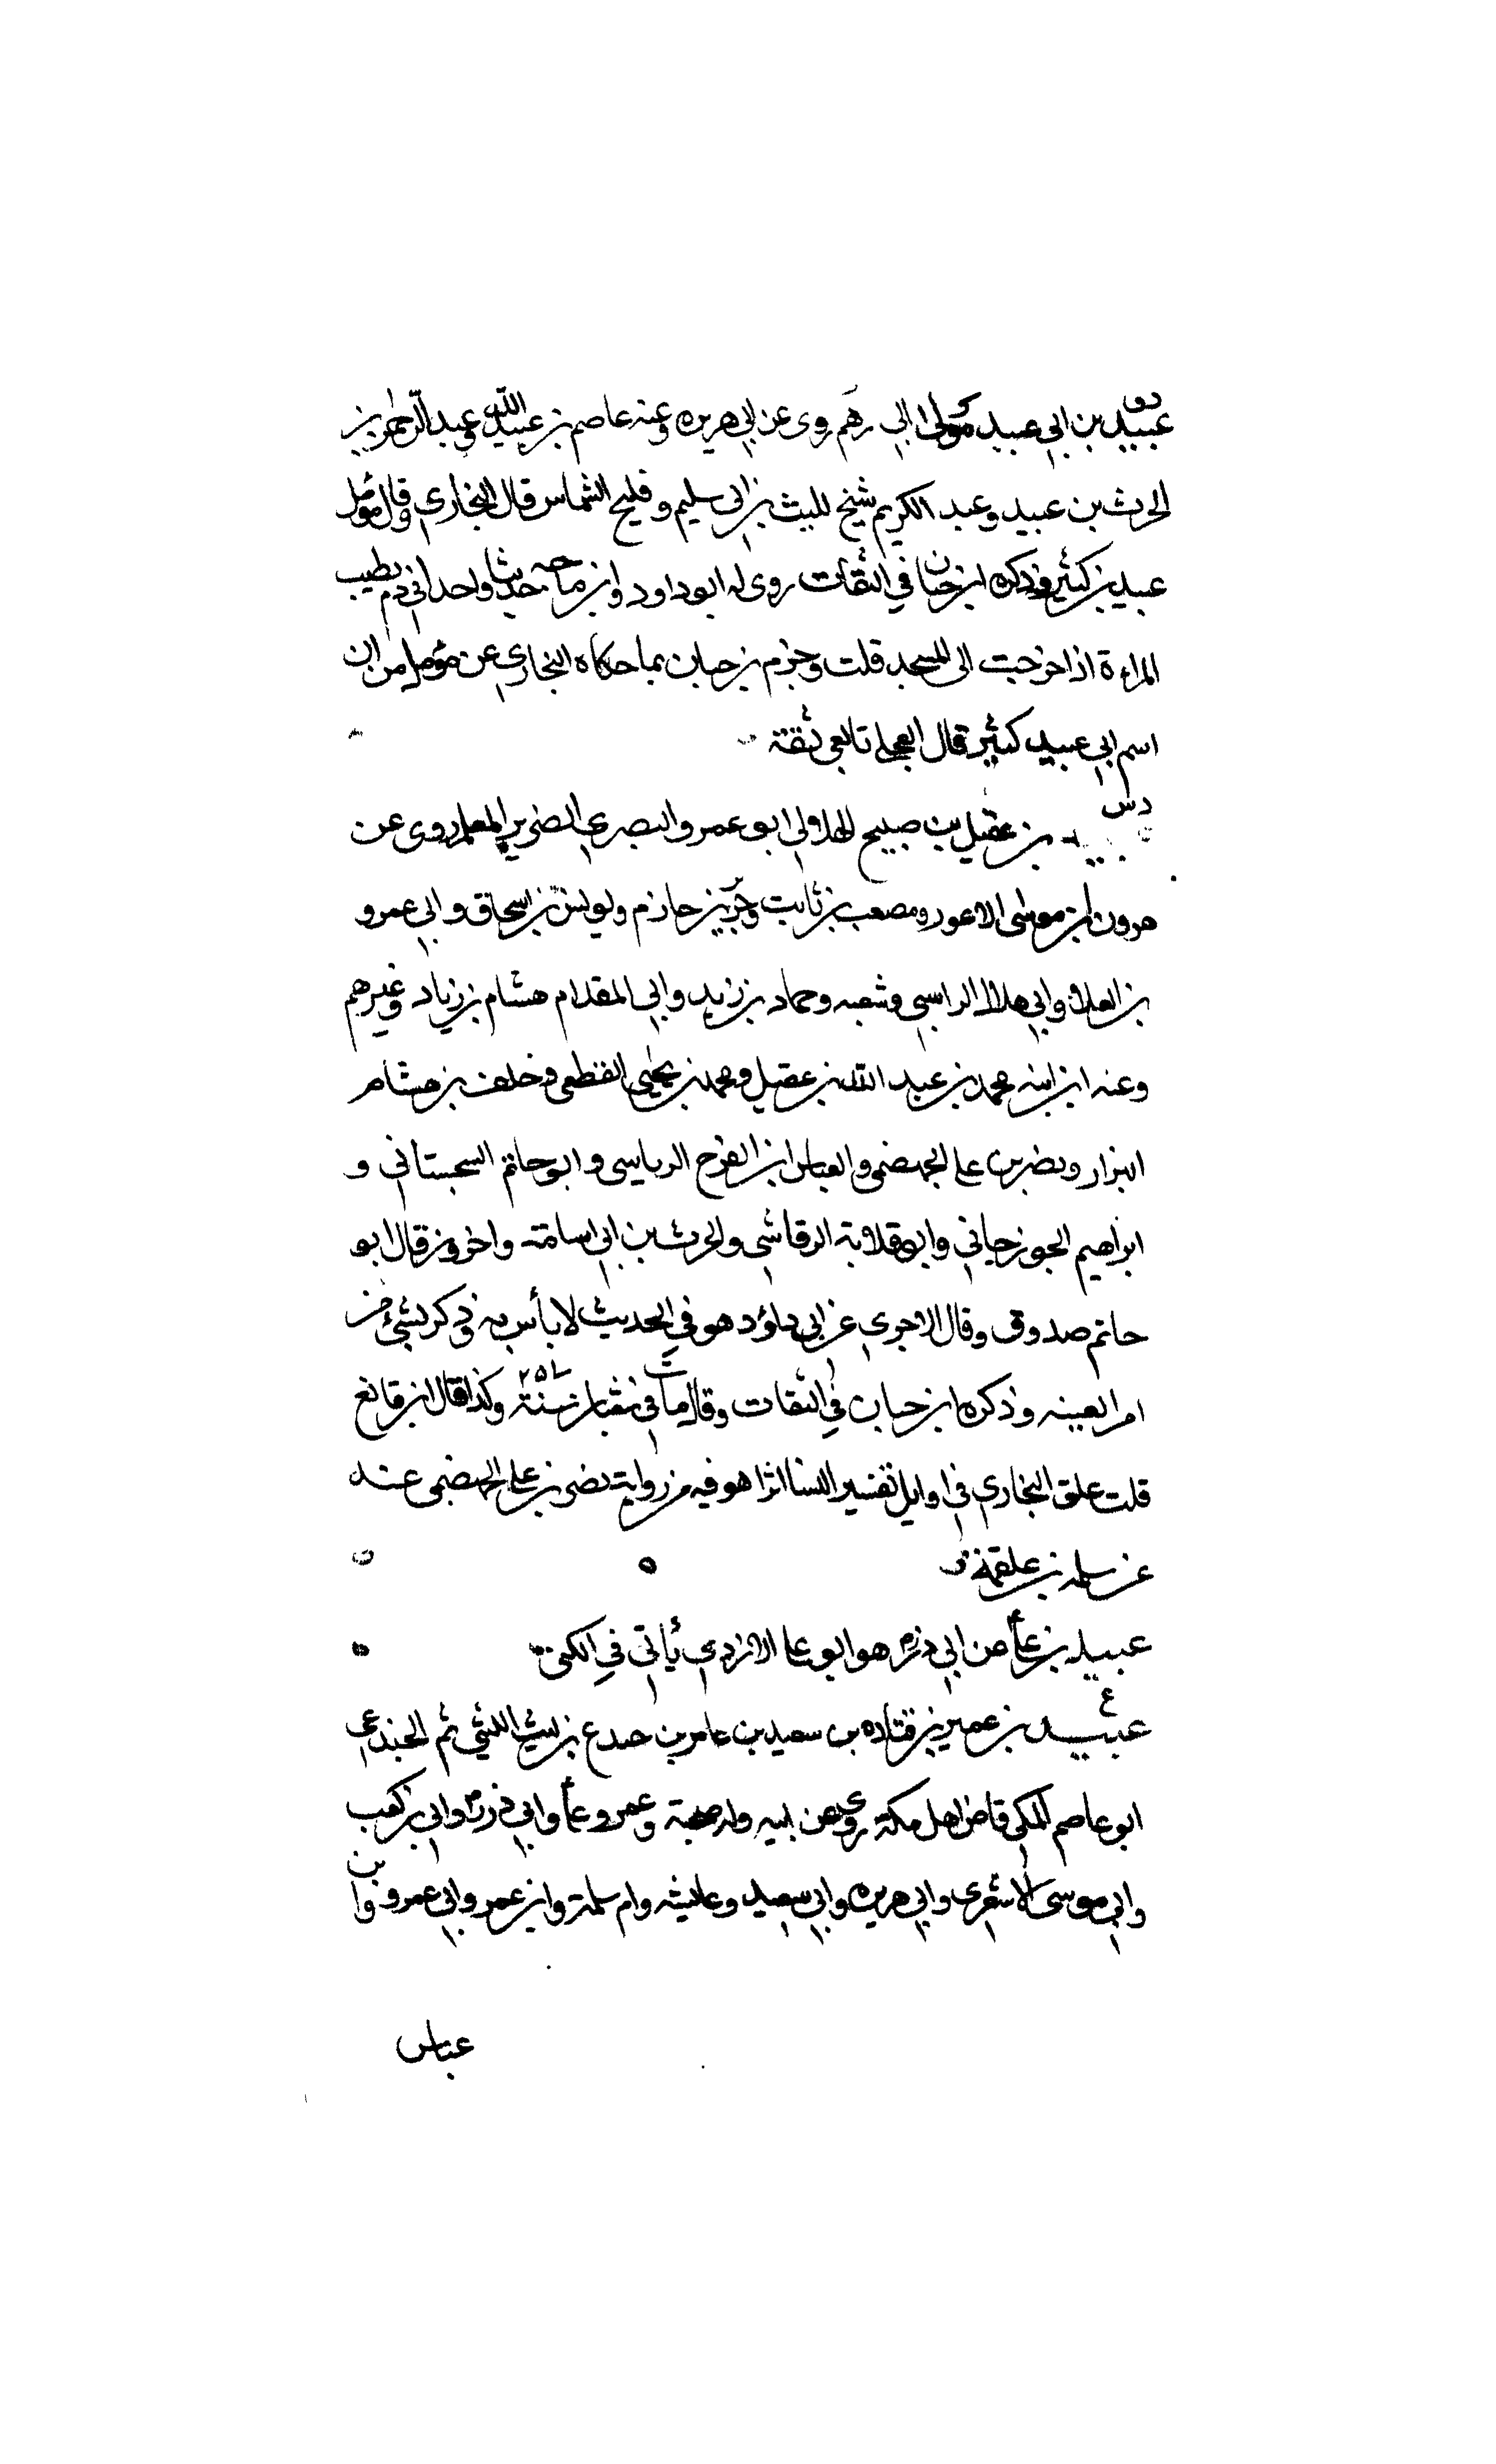 دق
عبيد بن ابي عبيد مولى ابي رهم روى عن ابي هريره وعنه عاصم بن عبيد الله وعبد الرحمن بن
الحرث بن عبيد وعبد الكريم شيخ لليث بن ابي سليم وفليح الشماس قال البخاري وقال مؤمل
عبيد بن كثير وذكره ابن حبان في الثقات روى له ابو داود وابن ماجه حديثا واحدا في ذم تطيب
المراءة اذا خرجت الى المسجد قلت وجزم بن حبان بما حكاه البخاري عن مؤمل من ان
اسم ابي عبيد كثير قال العجلي تابعي ثقة
دس
بن عقيل بن صبيح الهلالي ابو عمرو البصري الضرير المعلم روى عن
هرون ابن موسى الاعور ومصعب بن ثابت وجرير بن حازم ويونس بن اسحاق وابي عمرو
بن العلا وابي هلال الراسبي وشعبه وحماد بن زيد وابي المقدام هشام بن زياد وغيرهم
وعنه ابن ابنه محمد بن عبد الله بن عقيل ومحمد بن يحيى القطعي وخلف بن هشام
البزار ونصر بن علي الجهضمي والعباس ابن الفرج الرياسي وابو حاتم السجستاني و
ابراهيم الجوزجاني وابو قلابة الرقاشي والحرث بن ابي اسامة واخرون قال ابو
حاتم صدوق وقال الاجري عن ابي داؤد هو في الحديث لا بأس به وذكر بشيء من
امر العينه وذكره ابن حبان في الثقات وقال مات في رمضان سنة ٢٥٧ وكذا قال ابن قانع
قلت علق البخاري في اوايل تفسير النسا اثرا هو فيه من رواية نصر بن علي الجهضمي عنه
عن سلمه بن علقمة
عبيد بن علي عن ابي ذر هو ابو علي الازدي يأتي في الكنى
ع
عبيد بن عمير بن قتاده بن سعيد بن عامر بن جندع بن ليث الليثي ثم الجندعي
ابو عاصم المكي قاص اهل مكة روى عن ابيه وله صحبة وعمر وعلي وابي ذر وابي بن كعب
وابي موسى الاشعري وابي هريره وابي سعيد وعايشه وام سلمة وابن عمر وابي عمرو وابن
عباس